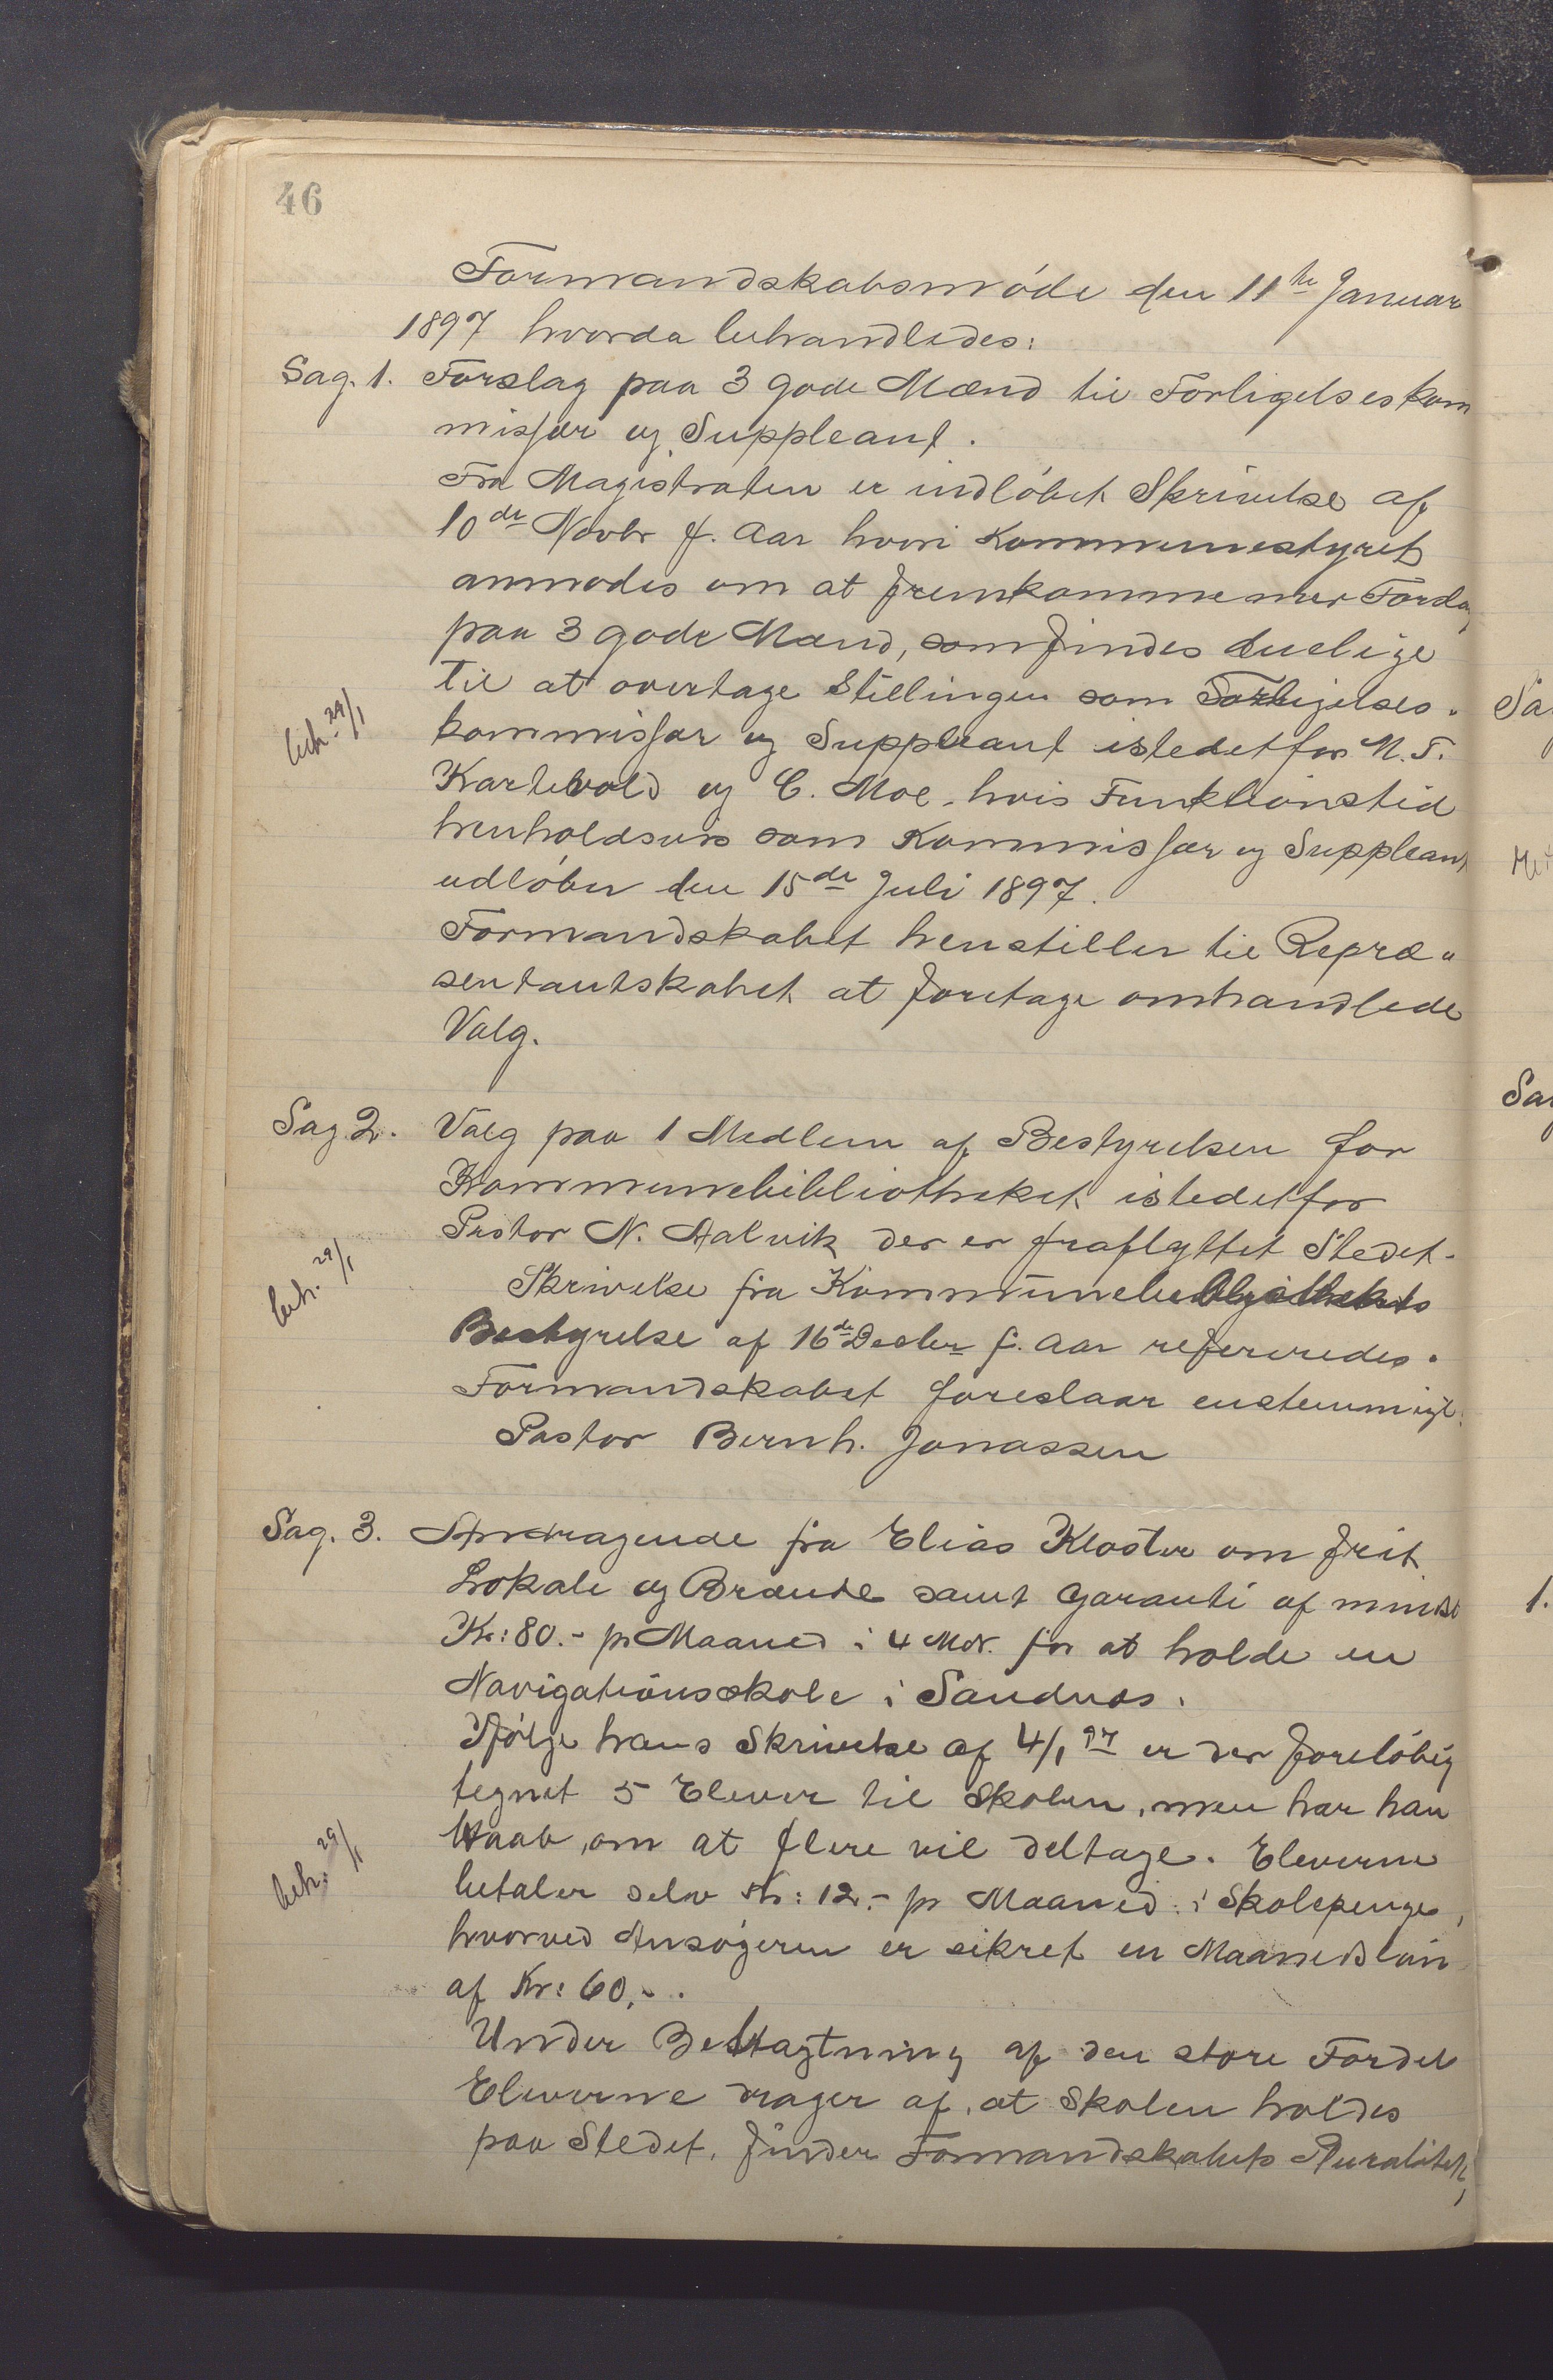 46
Formandskabsmøde den 11te Januar
1897 hvorda behandledes:
Sag. 1. Forslag paa 3 gode Mænd til Forligelseskom
missær og Suppleant.
Fra Magistraten er indløbet Skrivelse af
10de Novbr f. Aar hvori Kommunestyret
anmodes om at fremkomme med Forslag
paa 3 gode Mænd, som findes duelige
til at overtage Stillingen som Forligelses-
beh. 29/1
kommissær og Suppleant istedetfor M. T.
Kartevold og C. Moe, hvis Funktionstid
henholdsvis som Kommissær og Suppleant
udløber den 15de Juli 1897.
Formandskabet henstiller til Repræ-
sentantskabet at foretage omhandlede
Valg.
Sag 2. Valg paa 1 Medlem af Bestyrelsen for
Kommunebibliotheket istedetfor
Pastor N. Aalvik der er fraflyttet Stedet.
beh. 29/1
Skrivelse fra Kommunebibliothekets
Bestyrelse af 16de Decbr f. Aar refereredes.
Formandskabet foreslaar enstemmigt:
Pastor Bernh. Jonassen
Sag. 3. Andragende fra Elias Kloster om frit
Lokale og Brænde samt Garanti af mindst
Kr: 80.- pr Maaned i 4 Mdr. for at holde en
Navigationsskole i Sandnæs.
Ifølge hans Skrivelse af 4/1 97 er der foreløbig
tegnet 5 Elever til Skolen, men har han
Haab om at flere vil deltage. Eleverne
beh. 29/1
betaler selv Kr: 12.- pr Maaned i Skolepenge,
hvorved Ansøgeren er sikret en Maanedsløn
af Kr: 60,-.
Under Betragtning af den store Fordel
Eleverne drager af, at Skolen holdes
paa Stedet, finder Formandskabets Pluralitet,